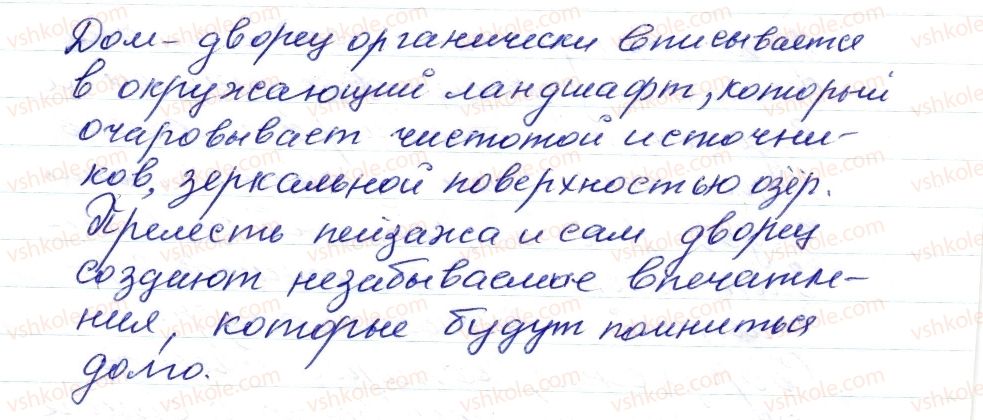 Дом-дворец органически вписывается
в окружающий ландшафт, который
очаровывает чистотой источни-
ков, зеркальной поверхностью озёр.
Прелесть пейзажа и сам дворец
создают незабываемое впечатле-
ния, которые будут помниться
долго.